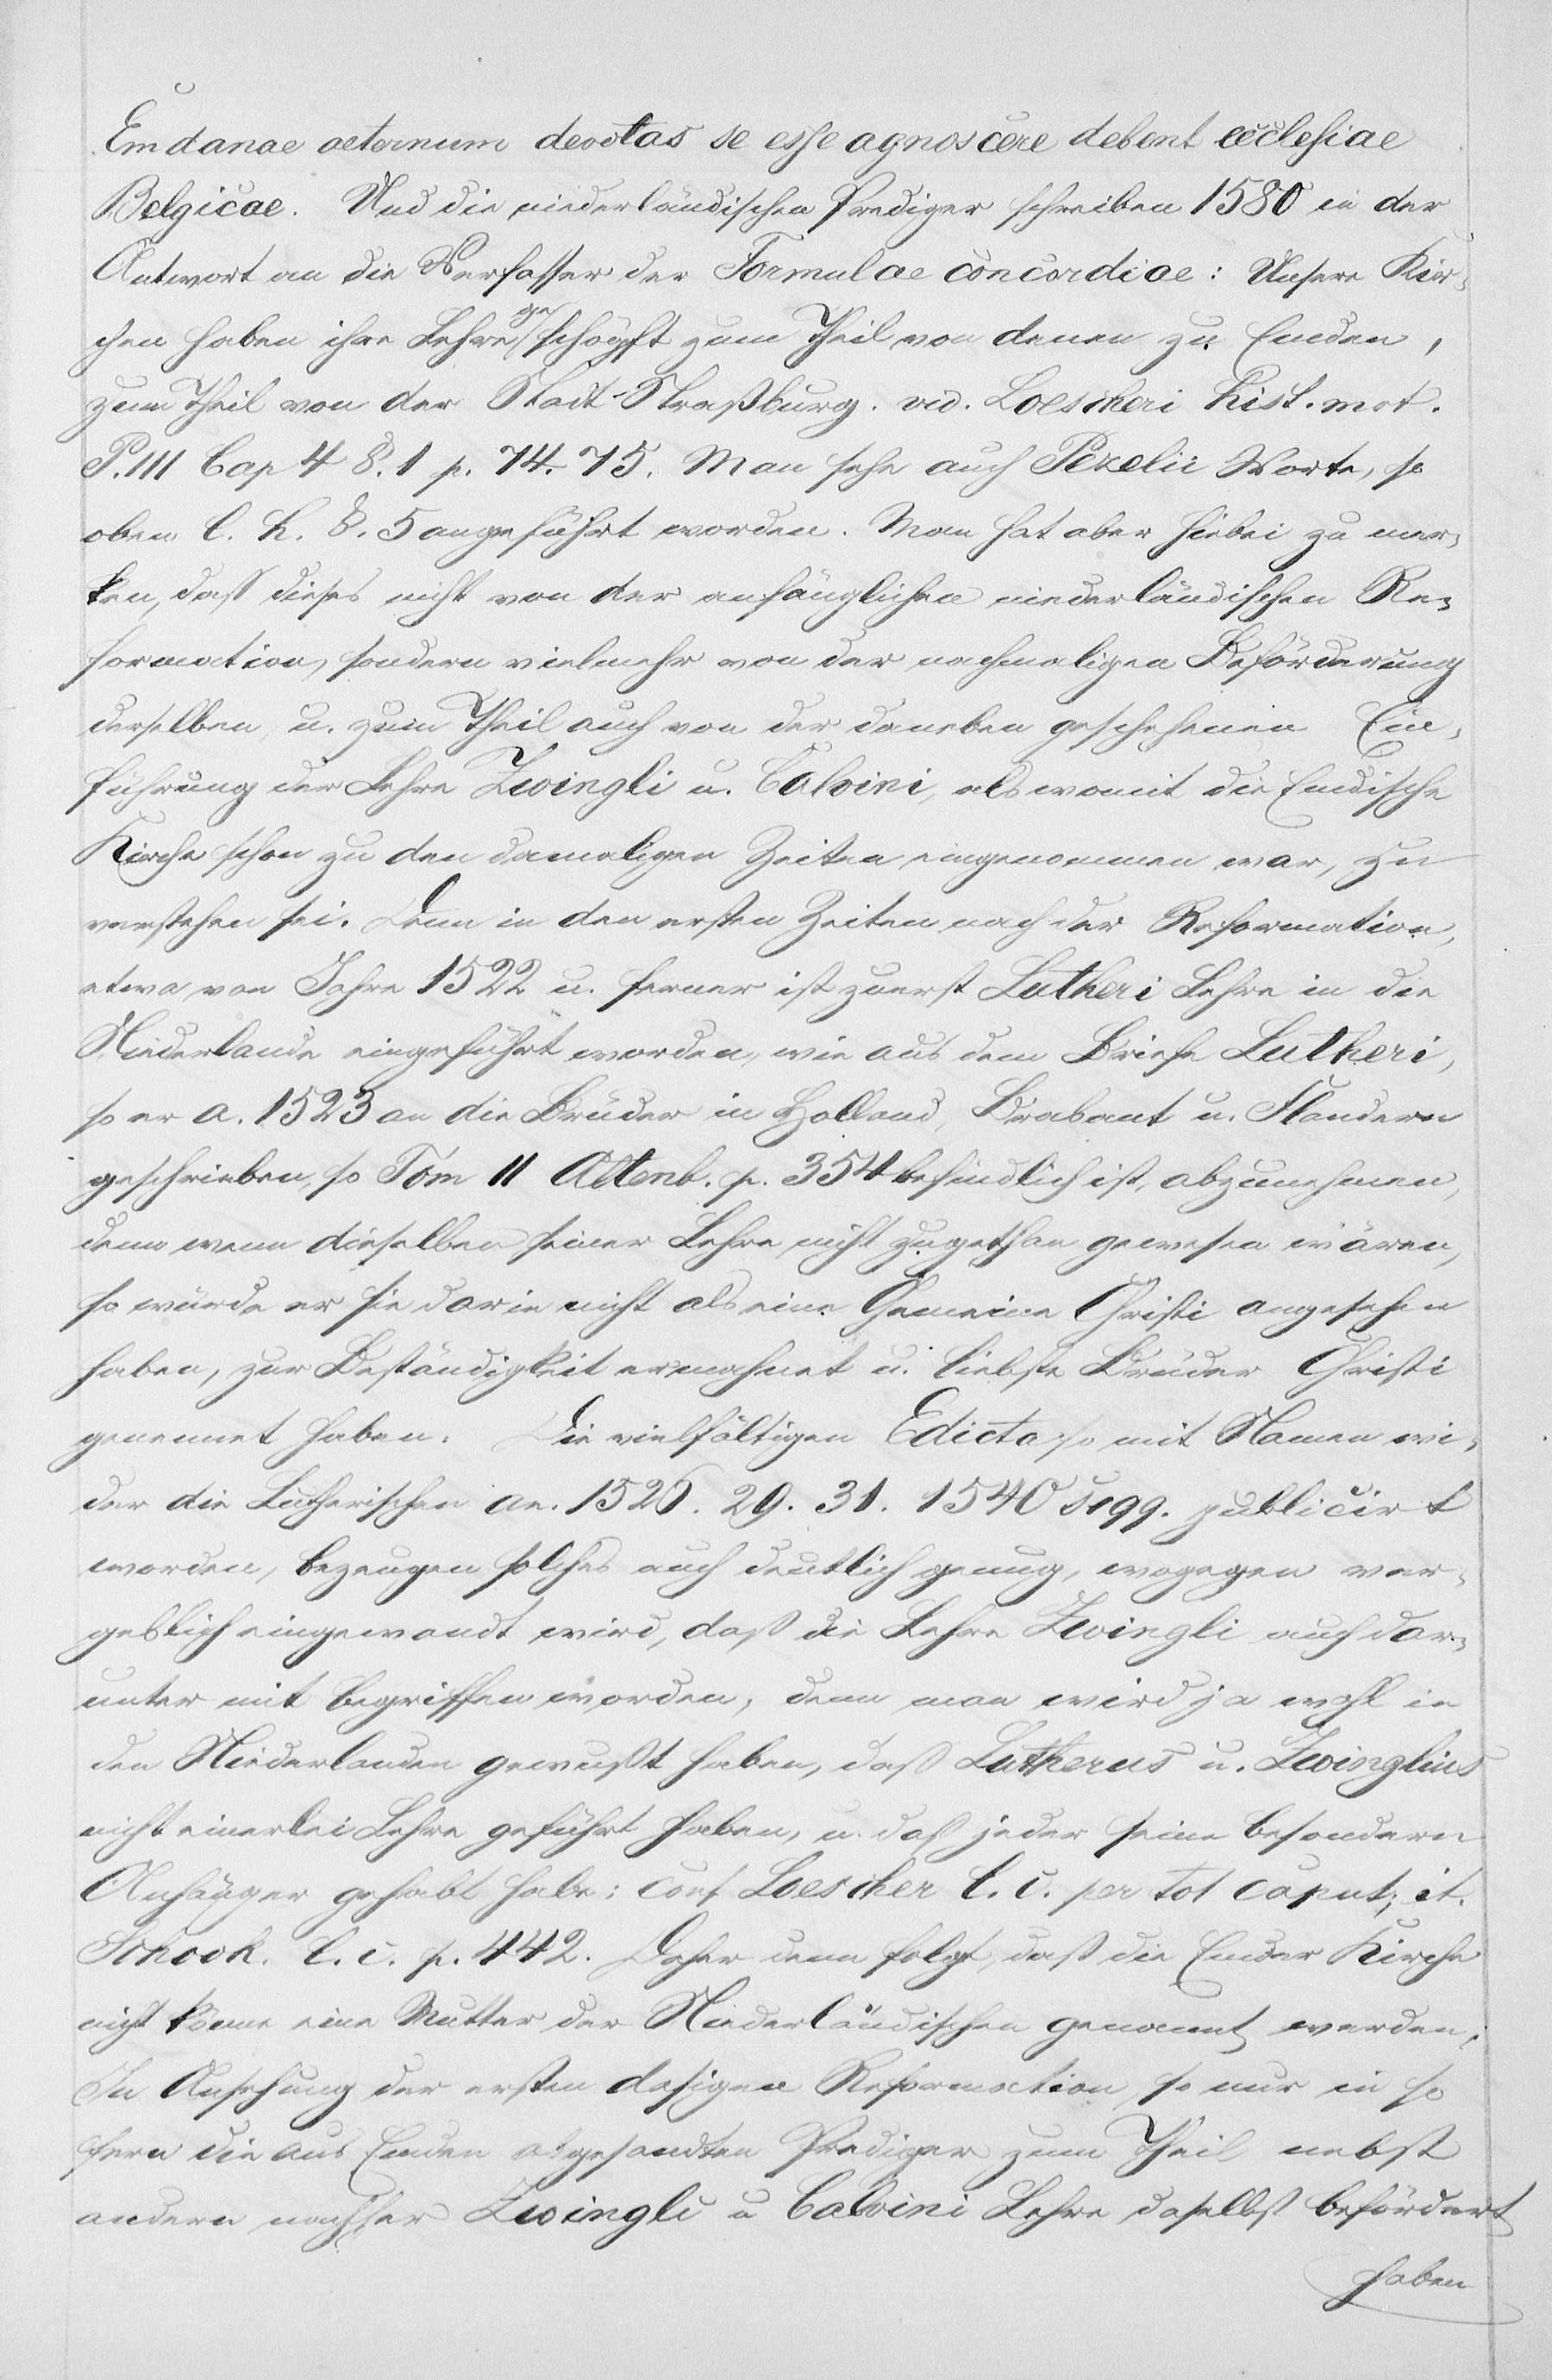 Emdanae aeternum devotas se esse agnoscere debent ecclesiae
Belgicae. Und die niederländischen Prediger schreiben 1580 in der
Antwort an die Verfasser der Formulae concordiae: Unsere Kir-
chen haben ihre Lehre geschöpft zum Theil von denen zu Emden,
zum Theil von der Stadt Straßburg. vid. Loescheri hist. mot.
P. III Cap 4 §. 1 p. 74. 75. Man sehe auch Pezelii Worte, so
oben C. h. §. 5 angeführt worden. Man hat aber hiebei zu mer-
ken, daß dieses nicht von der anfänglichen niederländischen Re-
formation, sondern vielmehr von der nachmaligen Beförderung
derselben, u. zum Theil auch von der daneben geschehenen Ein-
führung der Lehre Zwingli u. Calvini, als womit die Emdische
Kirche schon zu den damaligen Zeiten eingenommen war, zu
verstehen sei. Denn in den ersten Zeiten nach der Reformation,
etwa von Jahre 1522 u. ferner ist zuerst Lutheri Lehre in die
Niederlande eingeführt worden, wie aus dem Briefe Lutheri,
so er a. 1523 an die Brüder in Holland, Brabant u. Flandern
geschrieben, so Tom II Altenb. p. 354 befindlich ist, abzunehmen,
denn wenn dieselben seiner Lehre nicht zugethan gewesen wären,
so würde er sie darin nicht als eine Gemeine Christi angesehen
haben, zur Beständigkeit ermahnet u. liebste Brüder Christi
genennet haben. Die vielfältigen Edicta so mit Namen wi-
der die Lutherischen an. 1526. 29. 31. 1540 seqq. publicirt
worden, bezeugen solches auch deutlich genug, wogegen ver-
geblich eingewandt wird, daß die Lehre Zwingli auch dar-
unter mit begriffen worden, denn man wird ja wohl in
den Niederlanden gewußt haben, daß Lutherus u. Zwinglius
nicht einerlei Lehre geführt haben, u. daß jeder seine besondern
Anhänger gehabt habe: conf Loescher l. c. per tot caput; it.
Schook. l. c. p. 442. Daher denn folgt, daß die Emder Kirche
nicht könne eine Mutter der Niederländischen genannt werden,
In Ansehung der ersten dasigen Reformation, so nur in so
fern die aus Emden abgesandten Prediger zum Theil nebst
andern nachher Zwingli u Calvini Lehre daselbst befördert
haben